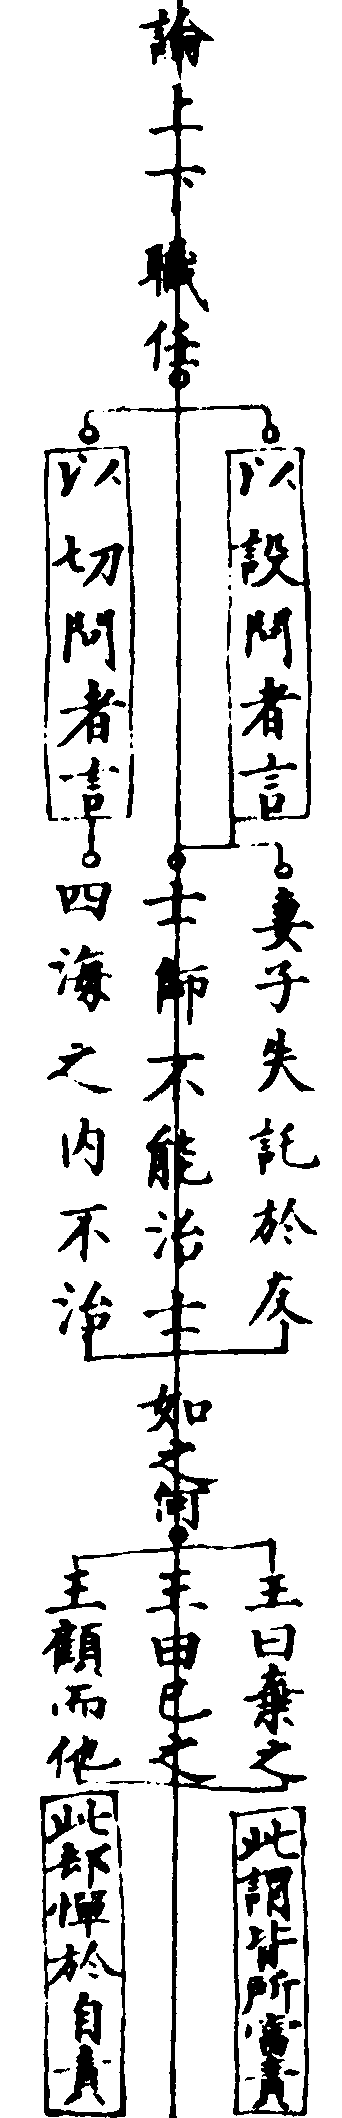 論上下職任
以設問者言
以切問者言
妻子失託於友
士師不能治士
四海之内不治
如之何
王曰棄之
王曰已之
王顧而他
此謂皆所當責
此却憚於自責